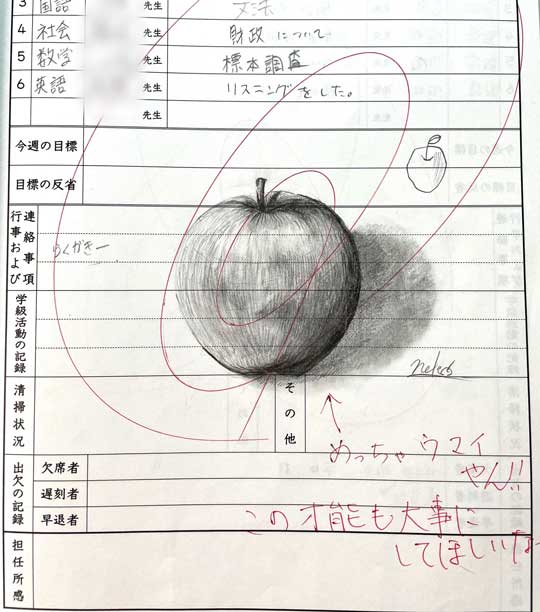 3 国語 先生 文法
4 社会 先生 財政について
5 数学 先生 標本調査
6 英語 先生 リスニングをした。
先生
今週の目標
目標の反省
連絡事項
行事および
らくがきー
学級活動の記録
清掃状況
その他
めっちゃウマイ
やん!!
出欠の記録
欠席者
遅刻者
早退者
この才能も大事に
してほしいなー
担任所感